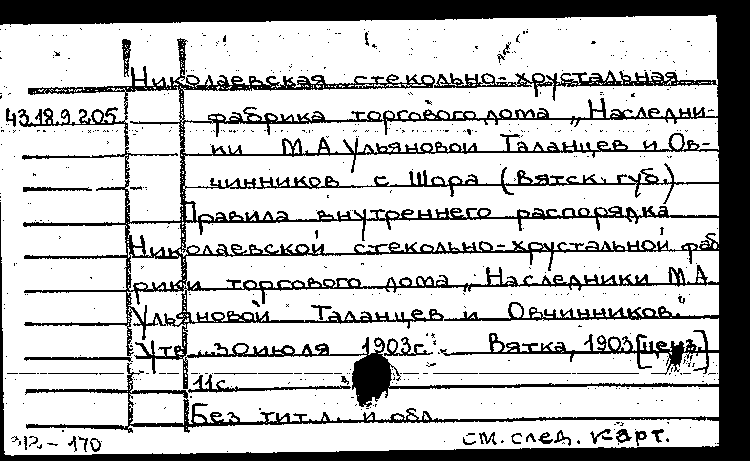 Николаевская стекольно-хрустальная
43.18.9.205 фабрика торгового дома „Наследни-
ки М.А. Ульяновой Таланцев и Ов-
чинников с. Шора (Вятск. губ.)
Правила внутреннего распорядка
Николаевской стекольно-хрустальной фаб
рики торгового дома „Наследники М.А.
Ульяновой Таланцев и Овчинников."
Утв. 30 июля 1903г. Вятка, 1903 [ценз.]
11с.
Без тит.л. и обл.
312-170 см. след. карт.